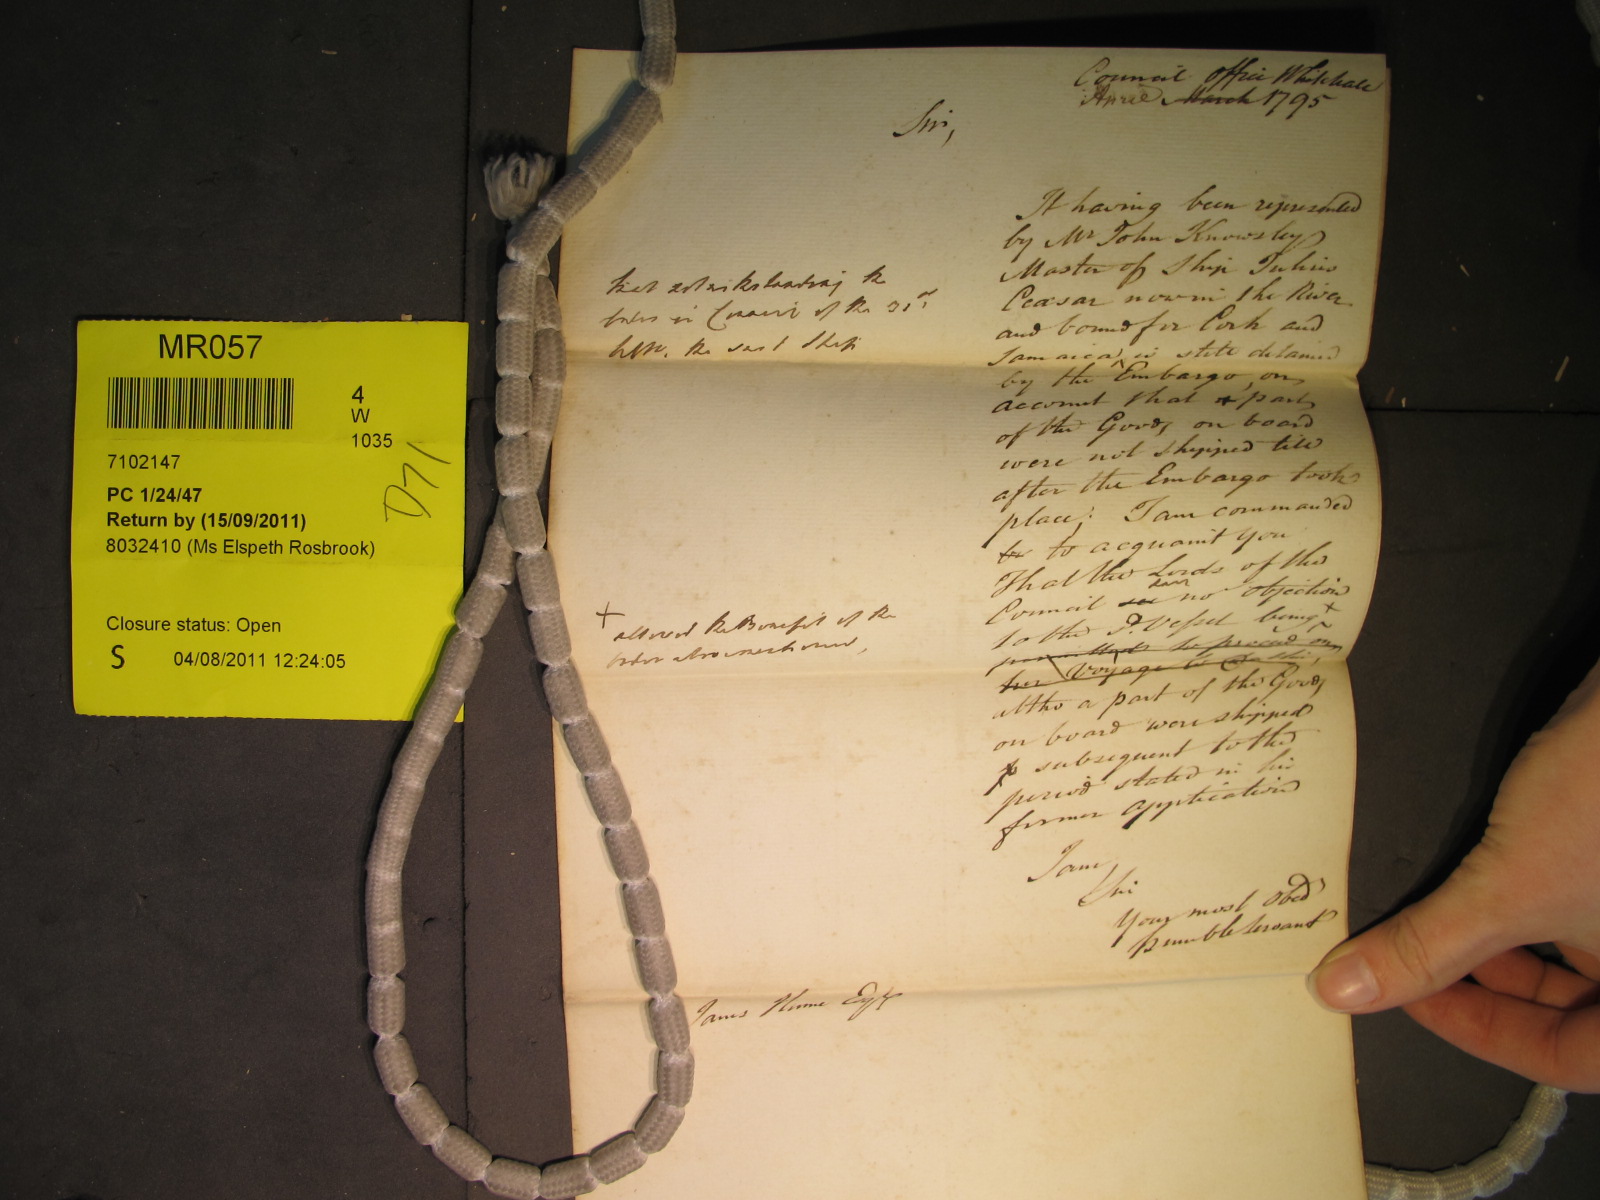 MR057
4
W
1035
7102147
PC 1/24/47
Return by (15/09/2011)
8032410 (Ms Elspeth Rosbrook)
D71
Closure status: Open
S 04/08/2011 12:24:05
Council Office Whitehall
April March 1795
Sir,
It having been represented
by Mr John Knowsley
Master of Ship Julius
Ceasar now in the River
and bound for Cork and
Jamaica, is still detained
by the Embargo, on
account that part
of the Goods on board
were not shipped till
after the Embargo took
place; I am commanded
to acquaint you
That the Lords of the
Council see have no objection
to the sd. Vessel being +
permitted to proceed on
her Voyage to
altho a part of the Goods
on board were shipped
subsequent to the
period stated in his
former application
I am
Sir
Your most Obed
humble Servant
that notwithstanding the
Order in Council of the 31st
the said Ship
+ allowed the Benefit of the
Order abovementioned,
James Hume Esqr